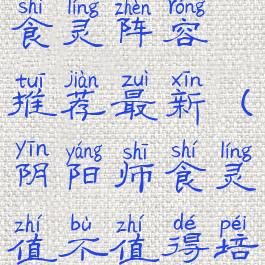 shí líng zhèn róng
食灵阵容
tuī jiàn zuì xīn
推荐最新（
yīn yáng shī shí líng
阴阳师食灵
zhí bù zhí dé péi
值不值得培